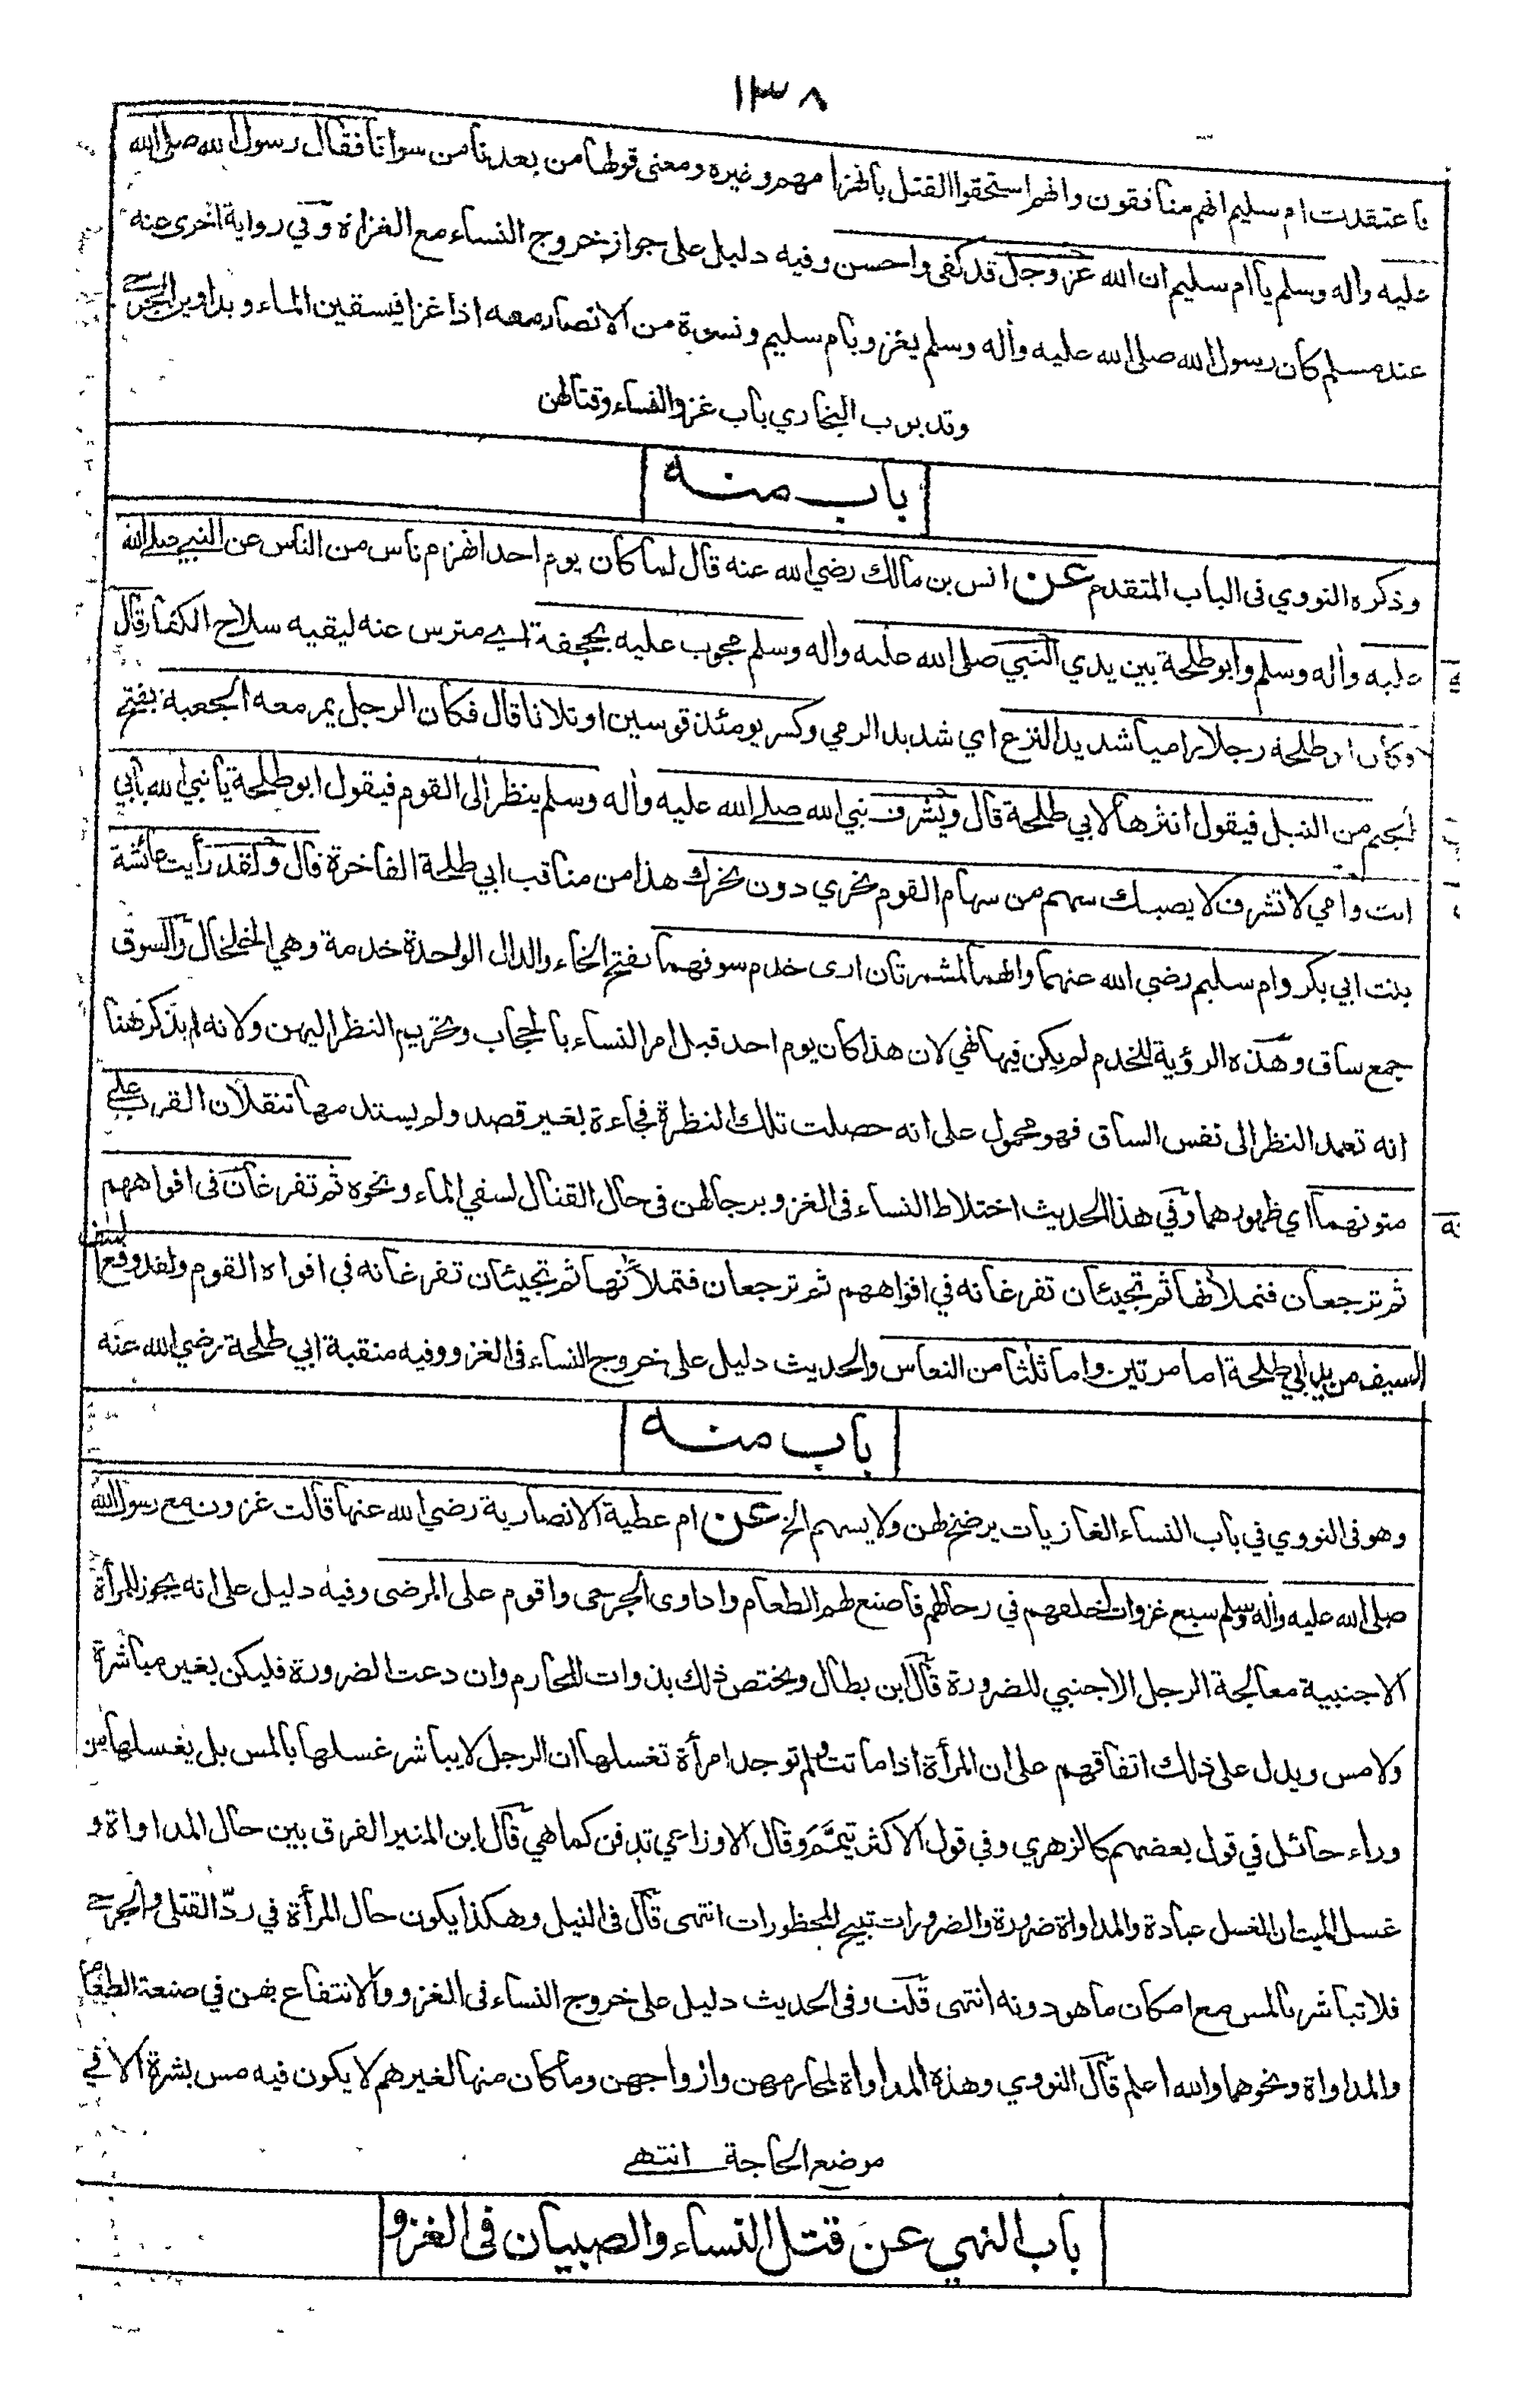 ١٣٨
فاعتقدت ام سليم انهم منافقون وانهم استحقوا القتل بانهزامهم وغيره ومعنى قولها من بعدنا من سوانا فقال رسول الله صلى الله
عليه وأله وسلم يا ام سليم ان الله عز وجل قد كفى واحسن وفيه دليل على جواز خروج النساء مع الغزاة وفي رواية اخرى عنه
عند مسلم كان رسول الله صلى الله عليه وأله وسلم يغزو بام سليم ونسوة من الانصار معه اذا غزا فيسقين الماء ويداوين الجرحى
وقد بوب البخاري باب غزو النساء وقتالهن
باب منه
وذكره النووي فى الباب المتقدم عن انس بن مالك رضي الله عنه قال لما كان يوم احد انهزم ناس من الناس عن النبي صلى الله
عليه وأله وسلم وابو طلحة بين يدي النبي صلى الله عليه وأله وسلم مجوب عليه بحجفة اي مترس عنه ليقيه سلاح الكفار قال
وكان ابو طلحة رجلا راميا شديد النزع اي شديد الرمي وكسر يومئذ قوسين او ثلاثا قال فكان الرجل يمر معه الجعبة بفتح
الجيم من النبل فيقول انثرها لابي طلحة قال ويشرف نبي الله صلى الله عليه وأله وسلم ينظر الى القوم فيقول ابو طلحة يا نبي الله بابي
انت وامي لا تشرف لا يصبك سهم من سهام القوم نحري دون نحرك هذا من مناقب ابي طلحة الفاخرة قال ولقد رأيت عائشة
بنت ابي بكر وام سليم رضي الله عنهما وانهما لمشمرتان ارى خدم سوقهما بفتح الخاء والدال الواحدة خدمة وهي الخلخال والسوق
جمع ساق وهذه الرؤية للخدم لم يكن فيها نهي لان هذا كان يوم احد قبل امر النساء بالحجاب وتحريم النظر اليهن ولانه لم يذكر هنا
انه تعمد النظر الى نفس الساق فهو محمول على انه حصلت تلك النظرة فجاءة بغير قصد ولم يستدمها تنقلان القرب على
متونهما اي ظهورهما وفي هذا الحديث اختلاط النساء فى الغزو برجالهن فى حال القتال لسقي الماء ونحوه ثم تفرغان فى افواههم
ثم ترجعان فتملأنها ثم تجيئان تفرغانه في افواههم ثم ترجعان فتملأنها ثم تجيئان تفرغانه في افواه القوم ولقد وقع
السيف من يد ابي طلحة اما مرتين واما ثلثا من النعاس والحديث دليل على خروج النساء فى الغزو وفيه منقبة ابي طلحة رضي الله عنه
باب منه
وهو فى النووي في باب النساء الغازيات يرضخ لهن ولا يسهم الخ عن ام عطية الانصارية رضي الله عنها قالت غزوت مع رسول الله
صلى الله عليه وأله وسلم سبع غزوات اخلفهم في رحالهم فاصنع لهم الطعام واداوى الجرحى واقوم على المرضى وفيه دليل على انه يجوز للمرأة
الاجنبية معالجة الرجل الاجنبي للضرورة قال ابن بطال ويختص ذلك بذوات المحارم وان دعت الضرورة فليكن بغير مباشرة
ولا مس ويدل على ذلك اتفاقهم على ان المرأة اذا ماتت ولم توجد امرأة تغسلها ان الرجل لا يباشر غسلها بالمس بل يغسلها من
وراء حائل في قول بعضهم كالزهري وفي قول الاكثر تيمم وقال الاوزاعي تدفن كما هي قال ابن المنير الفرق بين حال المداواة و
غسل الميت ان الغسل عبادة والمداواة ضرورة والضرورات تبيح المحظورات انتهى قال فى النيل وهكذا يكون حال المرأة في ردّ القتلى والجرحى
فلا تباشر بالمس مع امكان ما هو دونه انتهى قلت وفى الحديث دليل على خروج النساء فى الغزو والانتفاع بهن في صنعة الطعام
والمداواة ونحوهما والله اعلم قال النووي وهذه المداواة لمحارمهن وازواجهن وما كان منها لغيرهم لا يكون فيه مس بشرة الا في
موضع الحاجة انتهى
باب النهي عن قتل النساء والصبيان فى الغزو